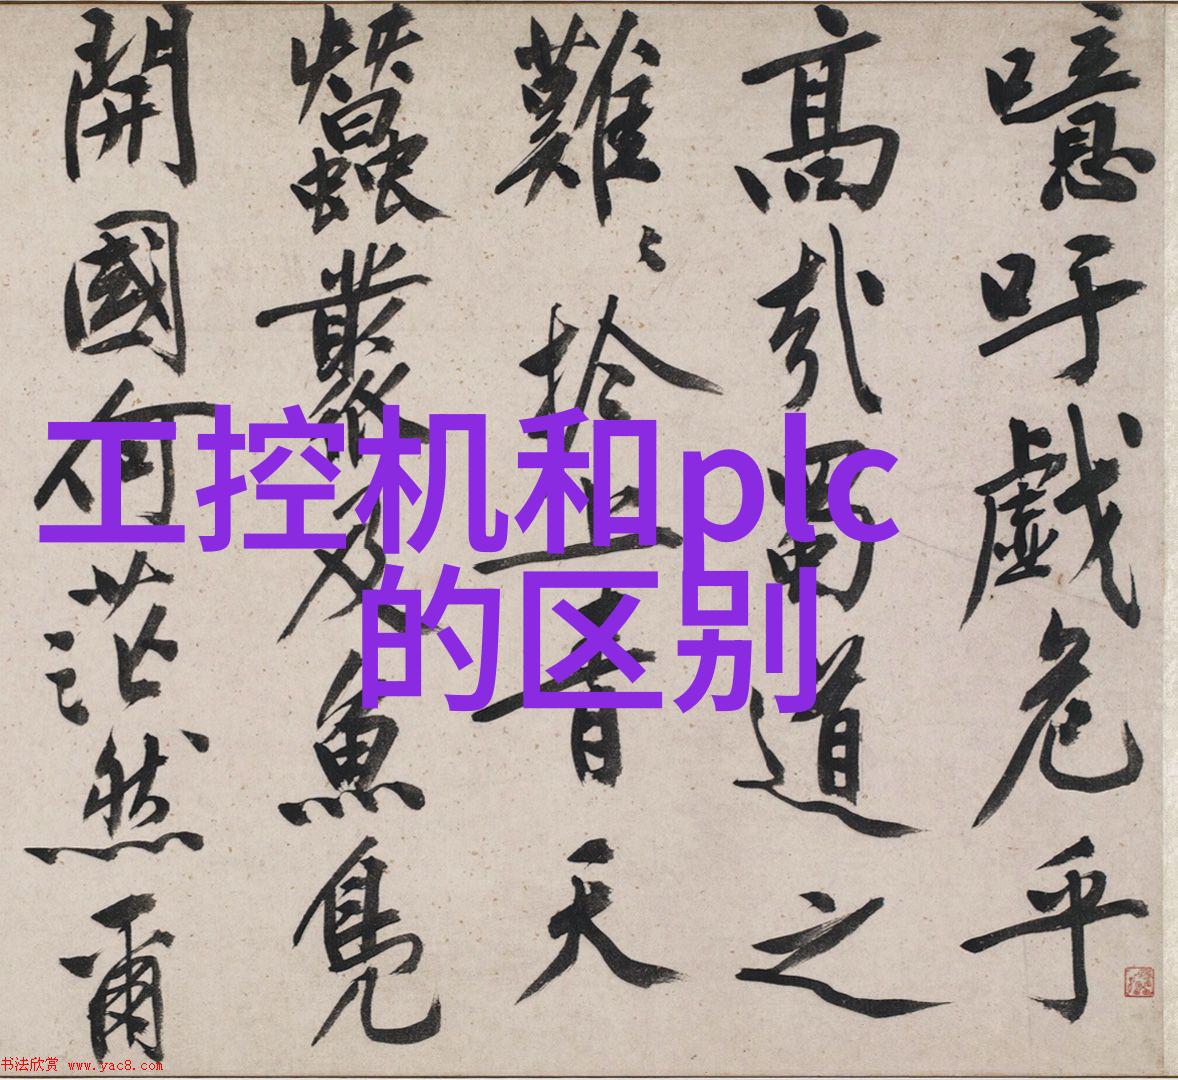 噫吁戲危乎
高哉蜀道之
難〻扵上青天
蠶叢及魚鳧
開國何茫然爾
工控机和plc
的区别
书法欣赏 www.yac8.com